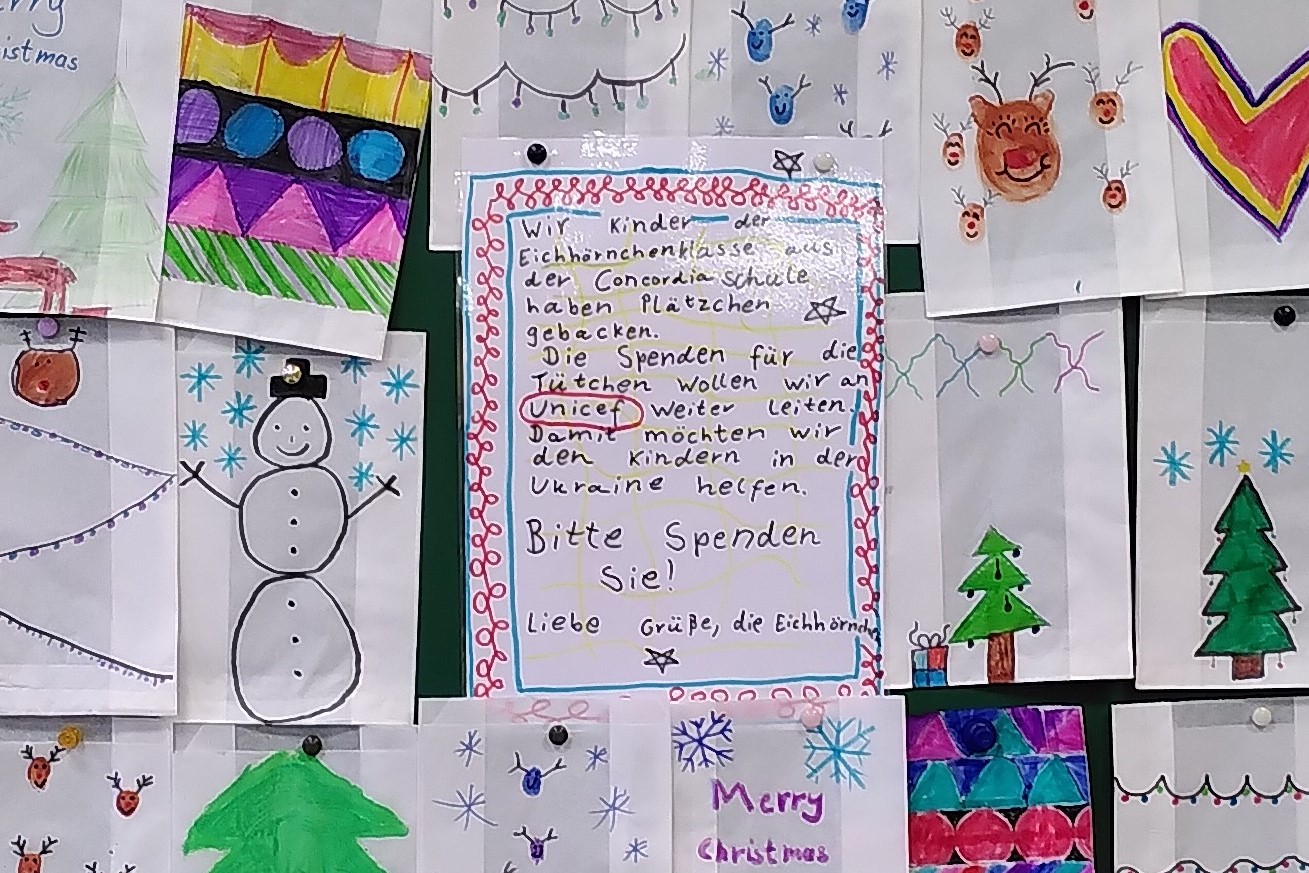 Merry
Christmas
Wir Kinder der
Eichhörnchenklasse aus
der Concordia schule
haben Plätzchen
gebacken.
Die Spenden für die
Tütchen wollen wir an
Unicef weiter leiten.
Damit möchten wir
den Kindern in der
Ukraine helfen.
Bitte Spenden
Sie!
Liebe Grüße, die Eichhörnchen
Merry
Christmas